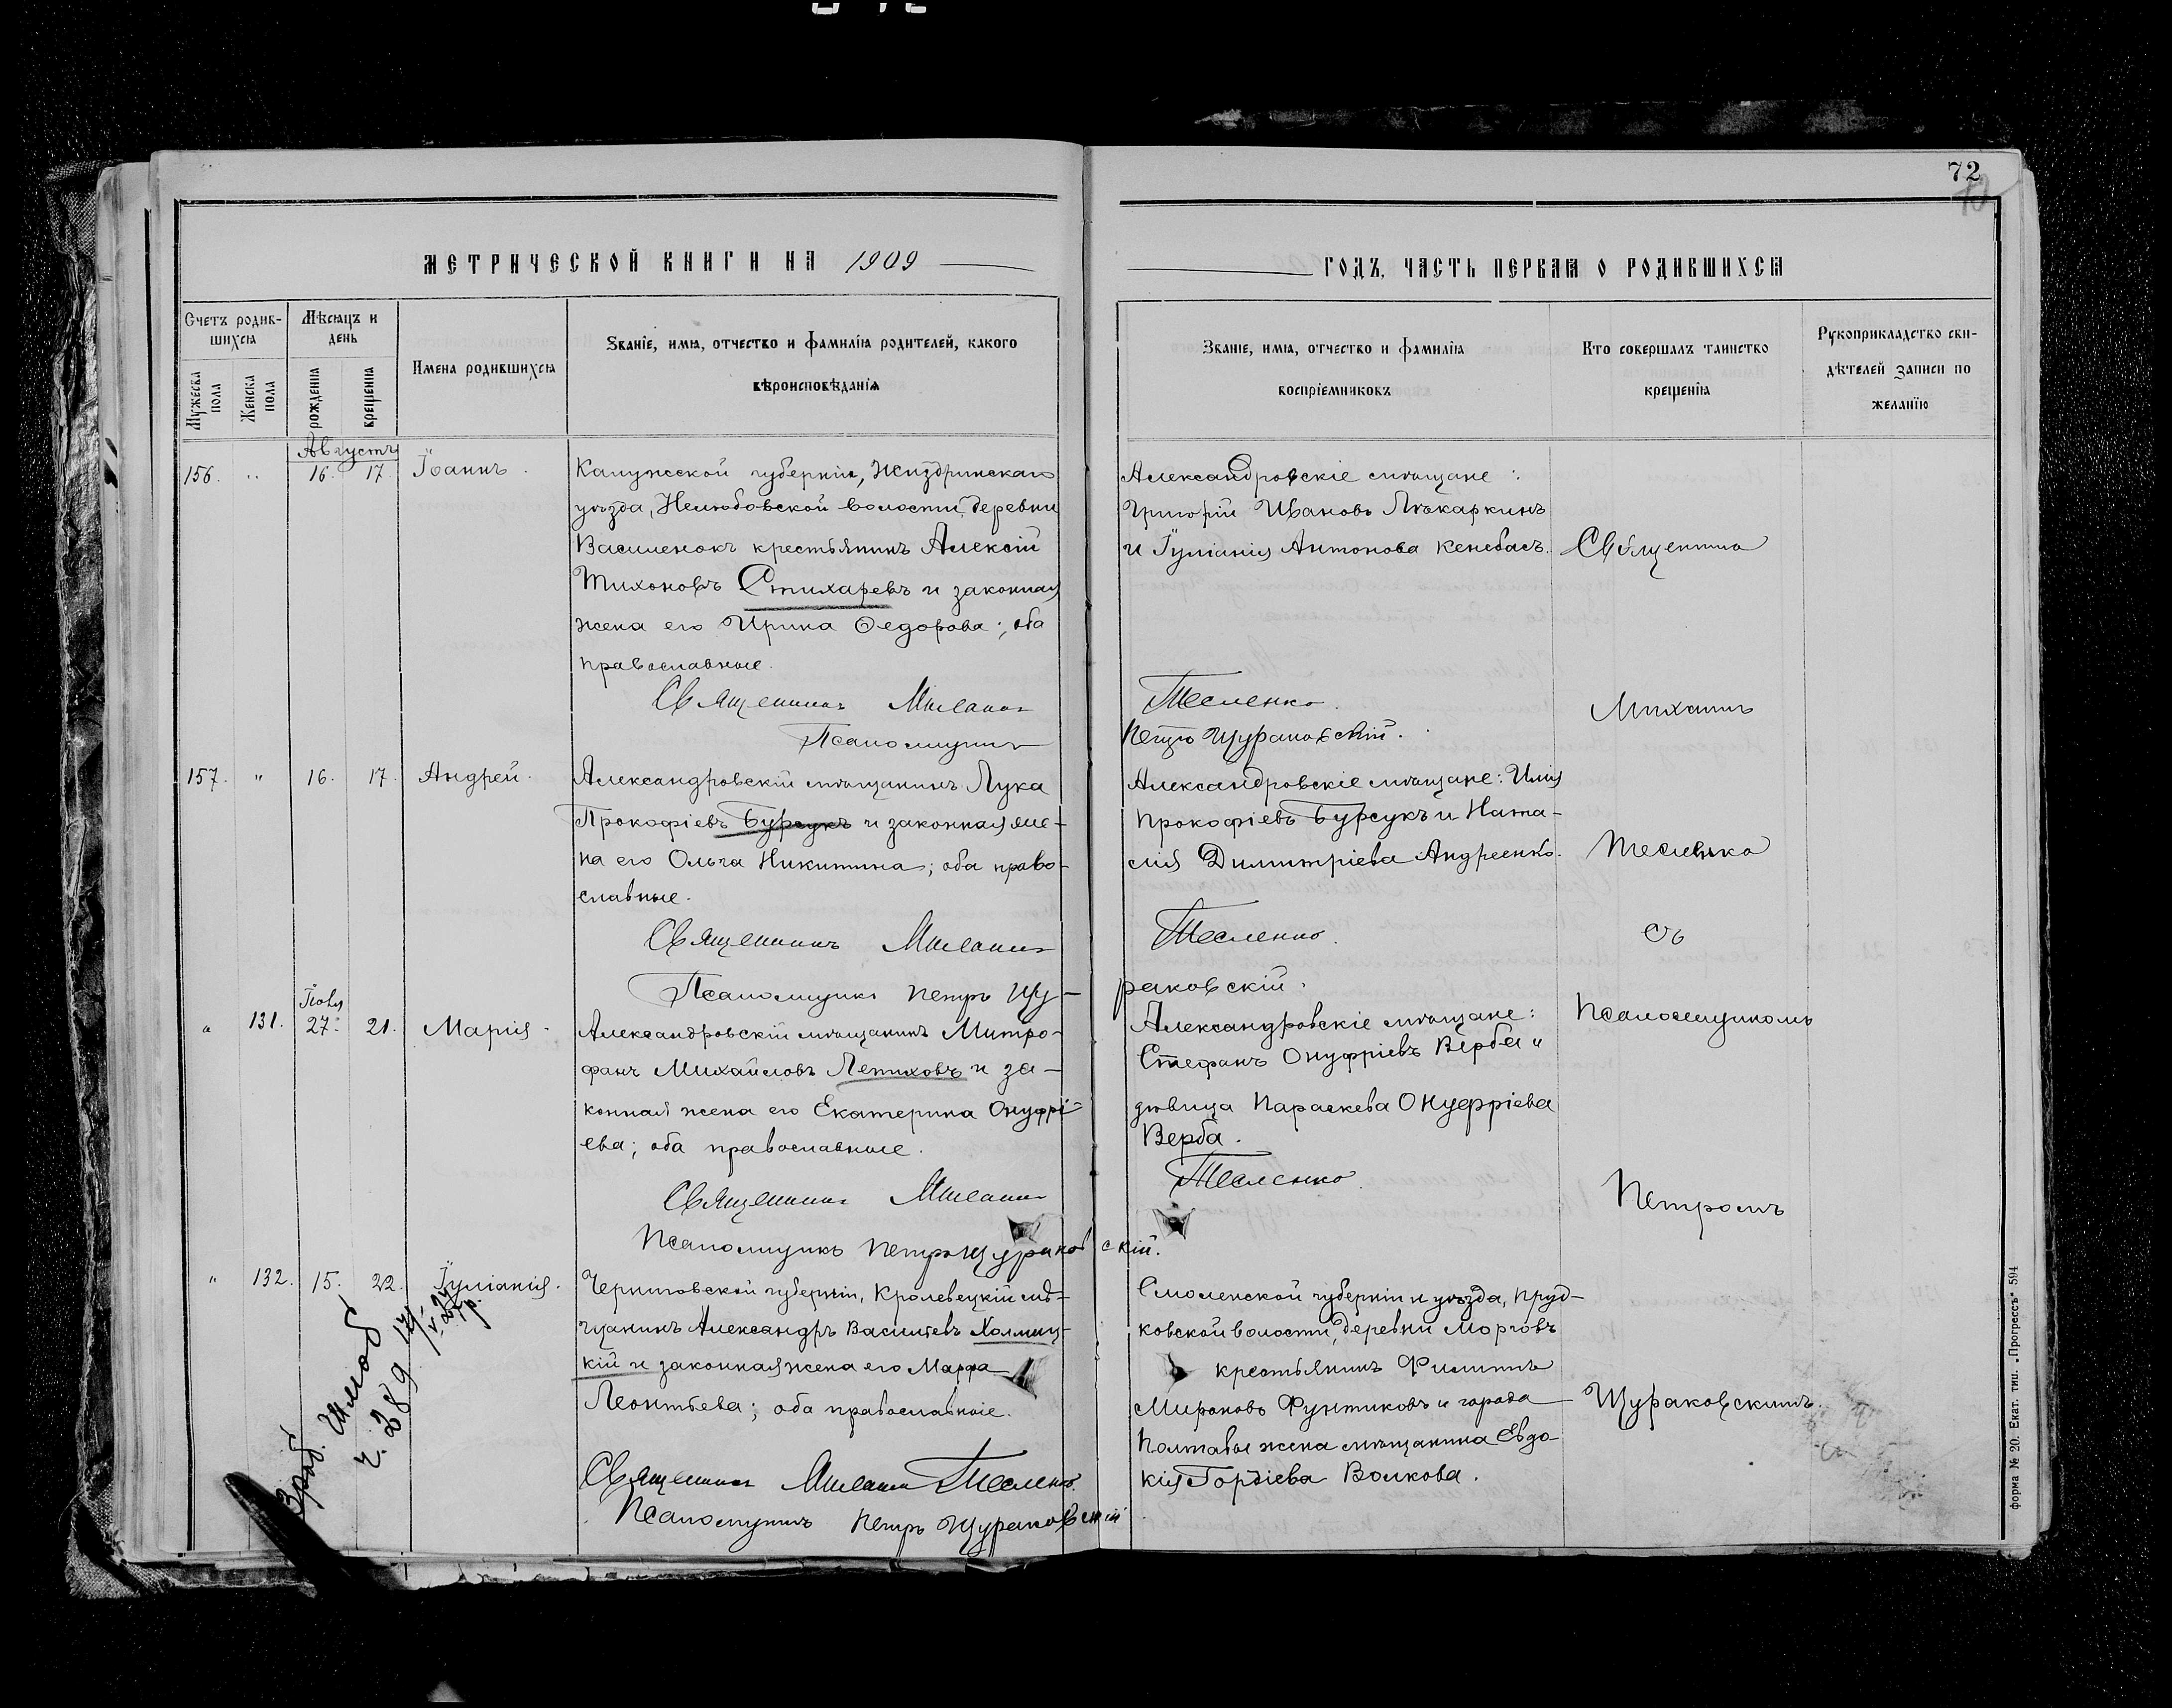 72
МЕТРИЧЕСКОЙ КНИГИ НА 1909
ГОДЪ, ЧАСТЬ ПЕРВАЯ О РОДИВШИХСЯ
Счетъ родив-
шихся
Мѣсяцъ и
день
Мужеска
пола
Женска
пола
рожденія
крещенія
Имена родившихся
Званіе, имя, отчество и фамилія родителей, какого
вѣроисповѣданія
Званіе, имя, отчество и фамилія
воспріемниковъ
Кто совершалъ таинство
крещенія
Рукоприкладство сви-
дѣтелей записи по
желанію
Августъ
156. " 16. 17. Іоаннъ.
Калужской губерніи, Жиздринскаго
уѣзда, Нелюбовской волости, деревни
Василенокъ крестьянинъ Алексій
Тихоновъ Стихаревъ и законная
жена его Ирина Ѳедорова; оба
православные.
Священникъ Михаилъ
Псаломщикъ
Александровскіе мѣщане:
Григорій Ивановъ Лѣкаркинъ
и Іуліанія Антонова Кенебасъ.
Тесленко.
Петръ Щураковскій.
Священникъ
Михаилъ
157. " 16. 17. Андрей.
Александровскій мѣщанинъ Лука
Прокофіевъ Бурсукъ и законная же-
на его Ольга Никитина; оба право-
славные.
Священникъ Михаилъ
Псаломщикъ Петръ Щу-
Александровскіе мѣщане: Илія
Прокофіевъ Бурсукъ и Ната-
лія Димитріева Андреенко.
Тесленко.
раковскій.
Тесленко
съ
Іюля
" 131. 27. 21. Марія.
Александровскій мѣщанинъ Митро-
фанъ Михайловъ Лепиховъ и за-
конная жена его Екатерина Онуфрі-
ева; оба православные.
Священникъ Михаилъ
Псаломщикъ Петръ Щураковскій.
Александровскіе мѣщане:
Стефанъ Онуфріевъ Верба и
дѣвица Параскева Онуфріева
Верба.
Тесленко.
Псаломщикомъ
Петромъ
" 132. 15. 22. Іуліанія.
Черниговской губерніи, Кролевецкій мѣ-
щанинъ Александръ Васильевъ Холмиц-
кій и законная жена его Марѳа
Леонтьева; оба православные.
Священникъ Михаилъ Тесленко.
Псаломщикъ Петръ Щураковскій
Смоленской губерніи и уѣзда, Пруд-
ковской волости, деревни Морговъ
крестьянинъ Филиппъ
Мироновъ Фунтиковъ и города
Полтавы жена мѣщанина Евдо-
кія Гордіева Волкова.
Щураковскимъ.
ч. 289
Форма № 20. Екат. тип. „Прогрессъ" 594